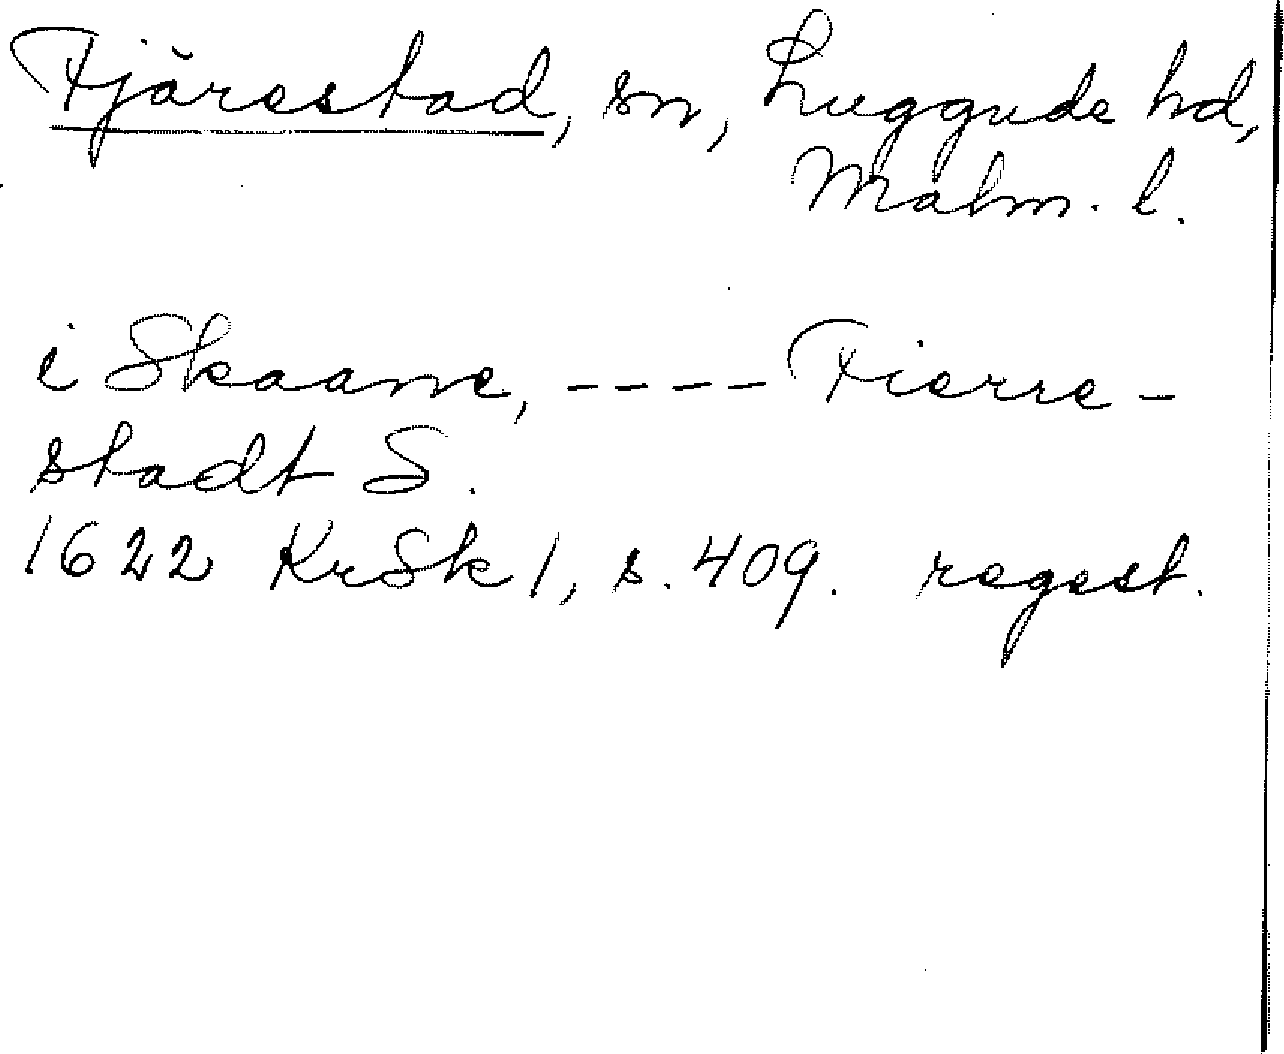 Fjärestad, sn, Luggude hd,
Malm. l.
i Skaane, ---- Fierre-
stadt S.
1622 KrSk 1, s. 409. regest.